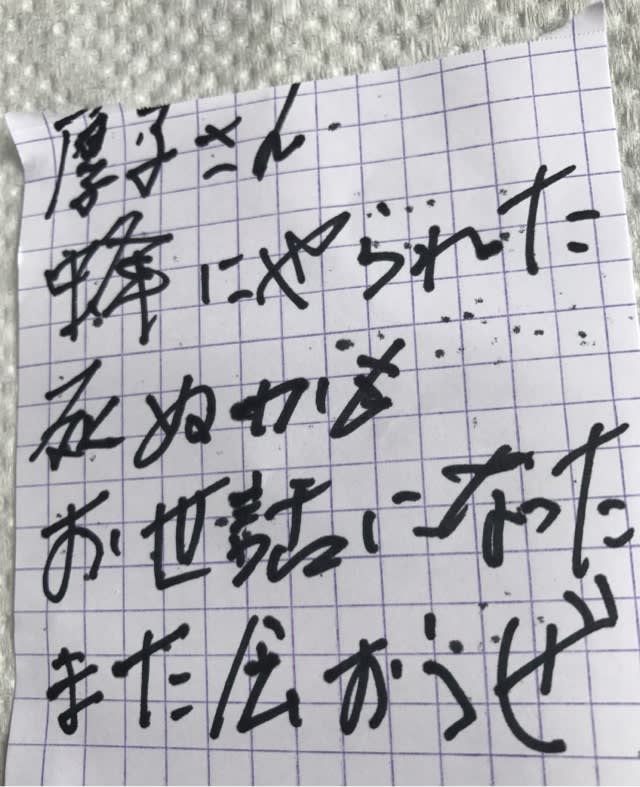 厚子さん
蜂にやられた
死ぬかも
お世話になった
また伝おうぜ